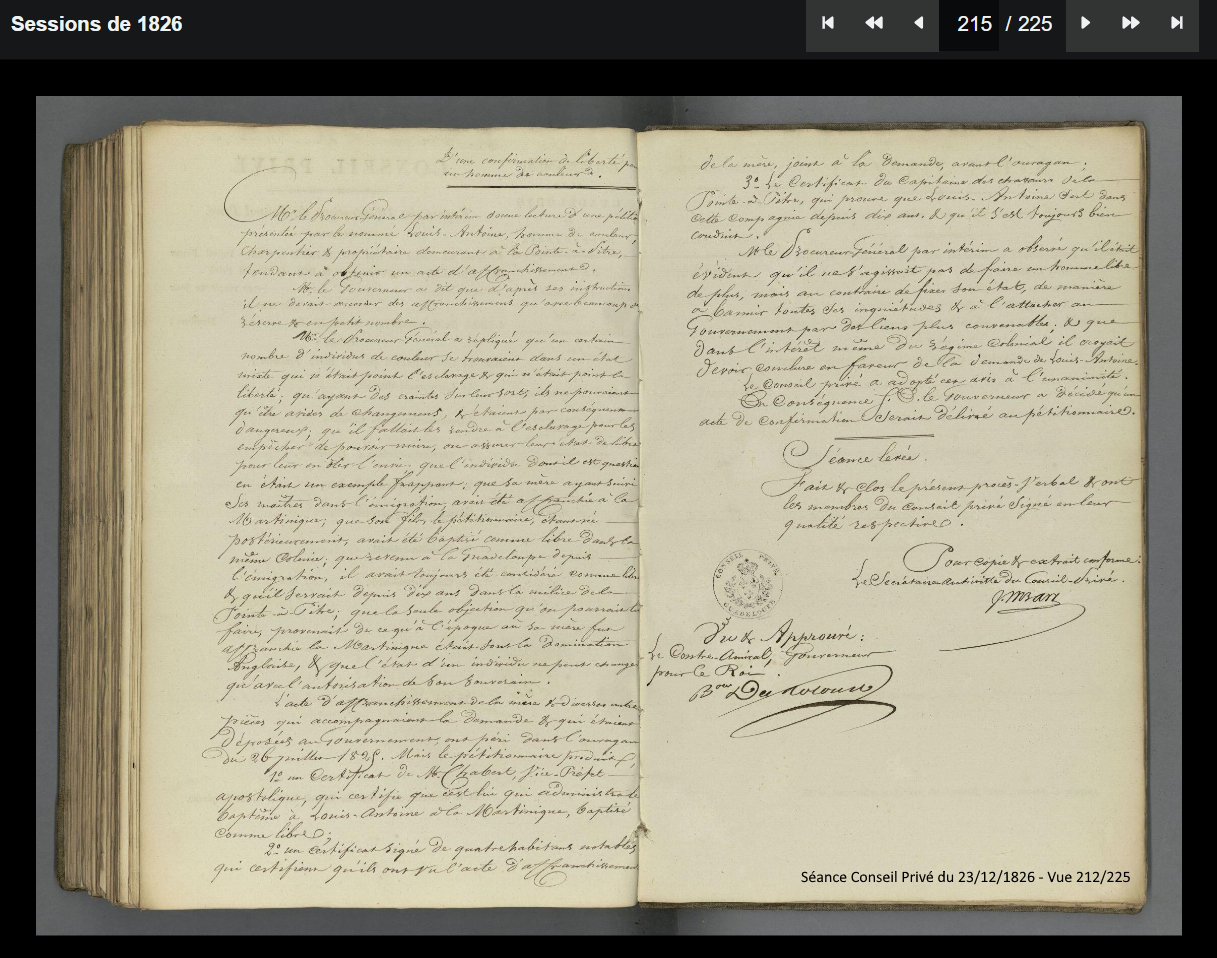 Sessions de 1826
215 / 225
D'une confirmation de liberté pour
un homme de couleur.
Mr. le Procureur général par intérim donne lecture d'une pétition
présentée par le nommé Louis-Antoine, homme de couleur,
Charpentier & propriétaire demeurant à la Pointe-à-Pitre,
tendant à obtenir un acte d'affranchissement.
Mr. le Gouverneur a dit que d'après ses instructions
il ne devait accorder des affranchissemens qu'avec beaucoup de
réserve & en petit nombre.
Mr. le Procureur Général a répliqué qu'un certain
nombre d'individus de couleur se trouvaient dans un état
mixte qui n'était point l'esclavage & qui n'était point la
liberté; qu'ayant des craintes sur leur sort, ils ne pouvaient
qu'être avides de changemens, & étaient par conséquent
dangereux; qu'il fallait les rendre à l'esclavage pour les
empêcher de pouvoir nuire, ou assurer leur état de libre
pour leur en ôter l'envie; que l'individu dont il est question
en était un exemple frappant; que sa mère ayant suivi
ses maîtres dans l'émigration, avait été affranchie à la
Martinique; que son fils, le pétitionnaire, étant né
postérieurement, avait été baptisé comme libre dans la
même Colonie; que revenu à la Guadeloupe depuis
l'émigration, il avait toujours été considéré comme libre
& qu'il servait depuis dix ans dans la milice de la
Pointe-à-Pitre; que la seule objection qu'on pourrait lui
faire, provenait de ce qu'à l'époque où sa mère fut
affranchie la Martinique était sous la Domination
Anglaise, & que l'état d'un individu ne peut changer
qu'avec l'autorisation de son Souverain.
L'acte d'affranchissement de la mère & diverses autres
pièces qui accompagnaient la demande & qui étaient
déposées au gouvernement, ont péri dans l'ouragan
du 26 juillet 1825. Mais le pétitionnaire produit,
1º un Certificat de Mr. Chabert, Vice-Préfet
apostolique, qui certifie que c'est lui qui administra le
baptême à Louis-Antoine à la Martinique, baptisé
comme libre;
2º un certificat signé de quatre habitans notables
qui certifient qu'ils ont vu l'acte d'affranchissement
de la mère, joint à la demande, avant l'ouragan.
3º Le Certificat du Capitaine des chasseurs de la
Pointe-à-Pitre, qui prouve que Louis-Antoine sert dans
cette compagnie depuis dix ans, & qu'il s'est toujours bien
conduit.
Mr. le Procureur Général par intérim a observé qu'il était
évident qu'il ne s'agissait pas de faire un homme libre
de plus, mais au contraire de fixer son état, de manière
à bannir toutes ses inquiétudes & à l'attacher au
Gouvernement par des liens plus convenables; & que
dans l'intérêt même du régime Colonial il croyait
devoir conclure en faveur de la demande de Louis-Antoine.
Le Conseil privé a adopté cet avis à l'unanimité.
En Conséquence S. E. le Gouverneur a décidé qu'un
acte de confirmation serait délivré au pétitionnaire.
Séance levée.
Fait & Clos le présent procès-Verbal & ont
les membres du Conseil privé signé en leur
qualité respective.
Pour copie & extrait conforme:
Le Secrétaire Archiviste du Conseil-Privé.
CONSEIL PRIVÉ
GUADELOUPE
Vu & Approuvé:
Le Contre-Amiral, Gouverneur
pour le Roi.
Séance Conseil Privé du 23/12/1826 - Vue 212/225